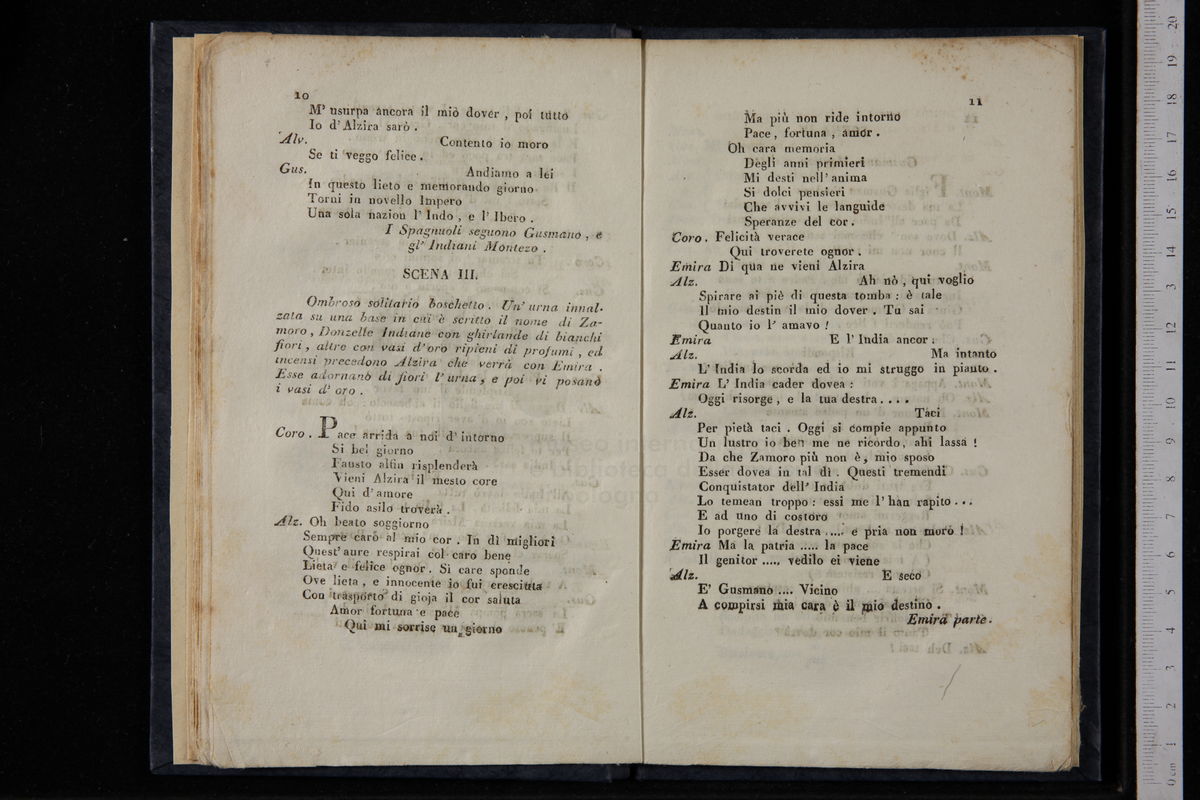 10
M' usurpa ancora il mio dover , poi tutto
Io d'Alzira sarò .
Alv. Contento io moro
Se ti veggo felice .
Gus. Andiamo a lei
In questo lieto e memorando giorno
Torni in novello Impero
Una sola nazion l' Indo , e l' Ibero .
I Spagnuoli seguono Gusmano , e
gl' Indiani Montezo .
SCENA III.
Ombroso solitario boschetto . Un' urna innal-
zata su una base in cui è scritto il nome di Za-
moro , Donzelle Indiane con ghirlande di bianchi
fiori , altre con vasi d' oro ripieni di profumi , ed
incensi precedono Alzira che verrà con Emira .
Esse adornano di fiori l' urna , e poi vi posano
i vasi d' oro .
Coro . Pace arrida a noi d' intorno
Si bel giorno
Fausto alfin risplenderà
Vieni Alzira il mesto core
Qui d' amore
Fido asilo troverà .
Alz. Oh beato soggiorno
Sempre caro al mio cor . In dì migliori
Quest' aure respirai col caro bene
Lieta e felice ognor . Si care sponde
Ove lieta , e innocente io fui cresciuta
Con trasporto di gioja il cor saluta
Amor fortuna e pace
Qui mi sorrise un giorno
11
Ma più non ride intorno
Pace , fortuna , amor .
Oh cara memoria
Degli anni primieri
Mi desti nell' anima
Si dolci pensieri
Che avvivi le languide
Speranze del cor .
Coro . Felicità verace
Qui troverete ognor .
Emira Di qua ne vieni Alzira
Alz. Ah nò , qui voglio
Spirare ai piè di questa tomba : è tale
Il mio destin il mio dover . Tu sai
Quanto io l' amavo !
Emira E l' India ancor .
Alz. Ma intanto
L' India lo scorda ed io mi struggo in pianto .
Emira L' India cader dovea :
Oggi risorge , e la tua destra . . . .
Alz. Taci
Per pietà taci . Oggi si compie appunto
Un lustro io ben me ne ricordo , ahi lassa !
Da che Zamoro più non è , mio sposo
Esser dovea in tal dì . Questi tremendi
Conquistator dell' India
Lo temean troppo : essi me l' han rapito . . .
E ad uno di costoro
Io porgere la destra ..... e pria non morò !
Emira Ma la patria ..... la pace
Il genitor ...., vedilo ei viene
Alz. E seco
E' Gusmano .... Vicino
A compirsi mia cara è il mio destino .
Emira parte .